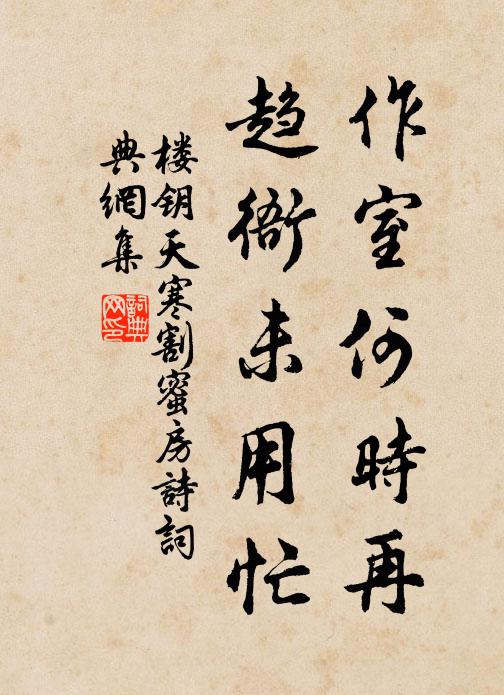 作室何時再
趋衙未用忙
楼钥天寒割蜜房詩詞
典網集
詞典网印